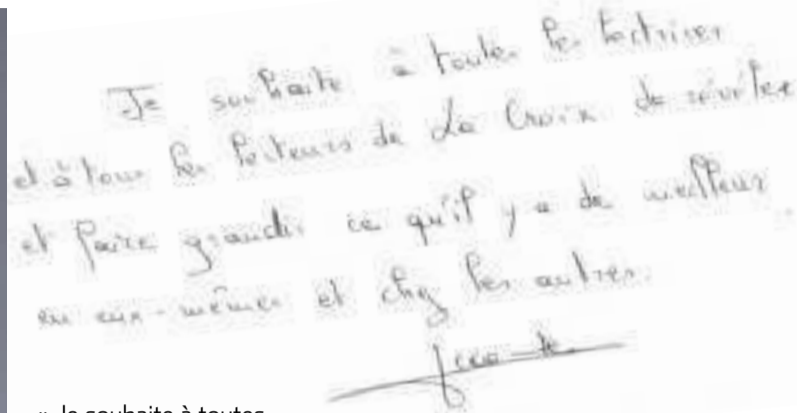 Je souhaite à toutes les lectrices
et à tous les lecteurs de La Croix de révéler
et faire grandir ce qu'il y a de meilleur
en eux-mêmes et chez les autres.
« Je souhaite à toutes